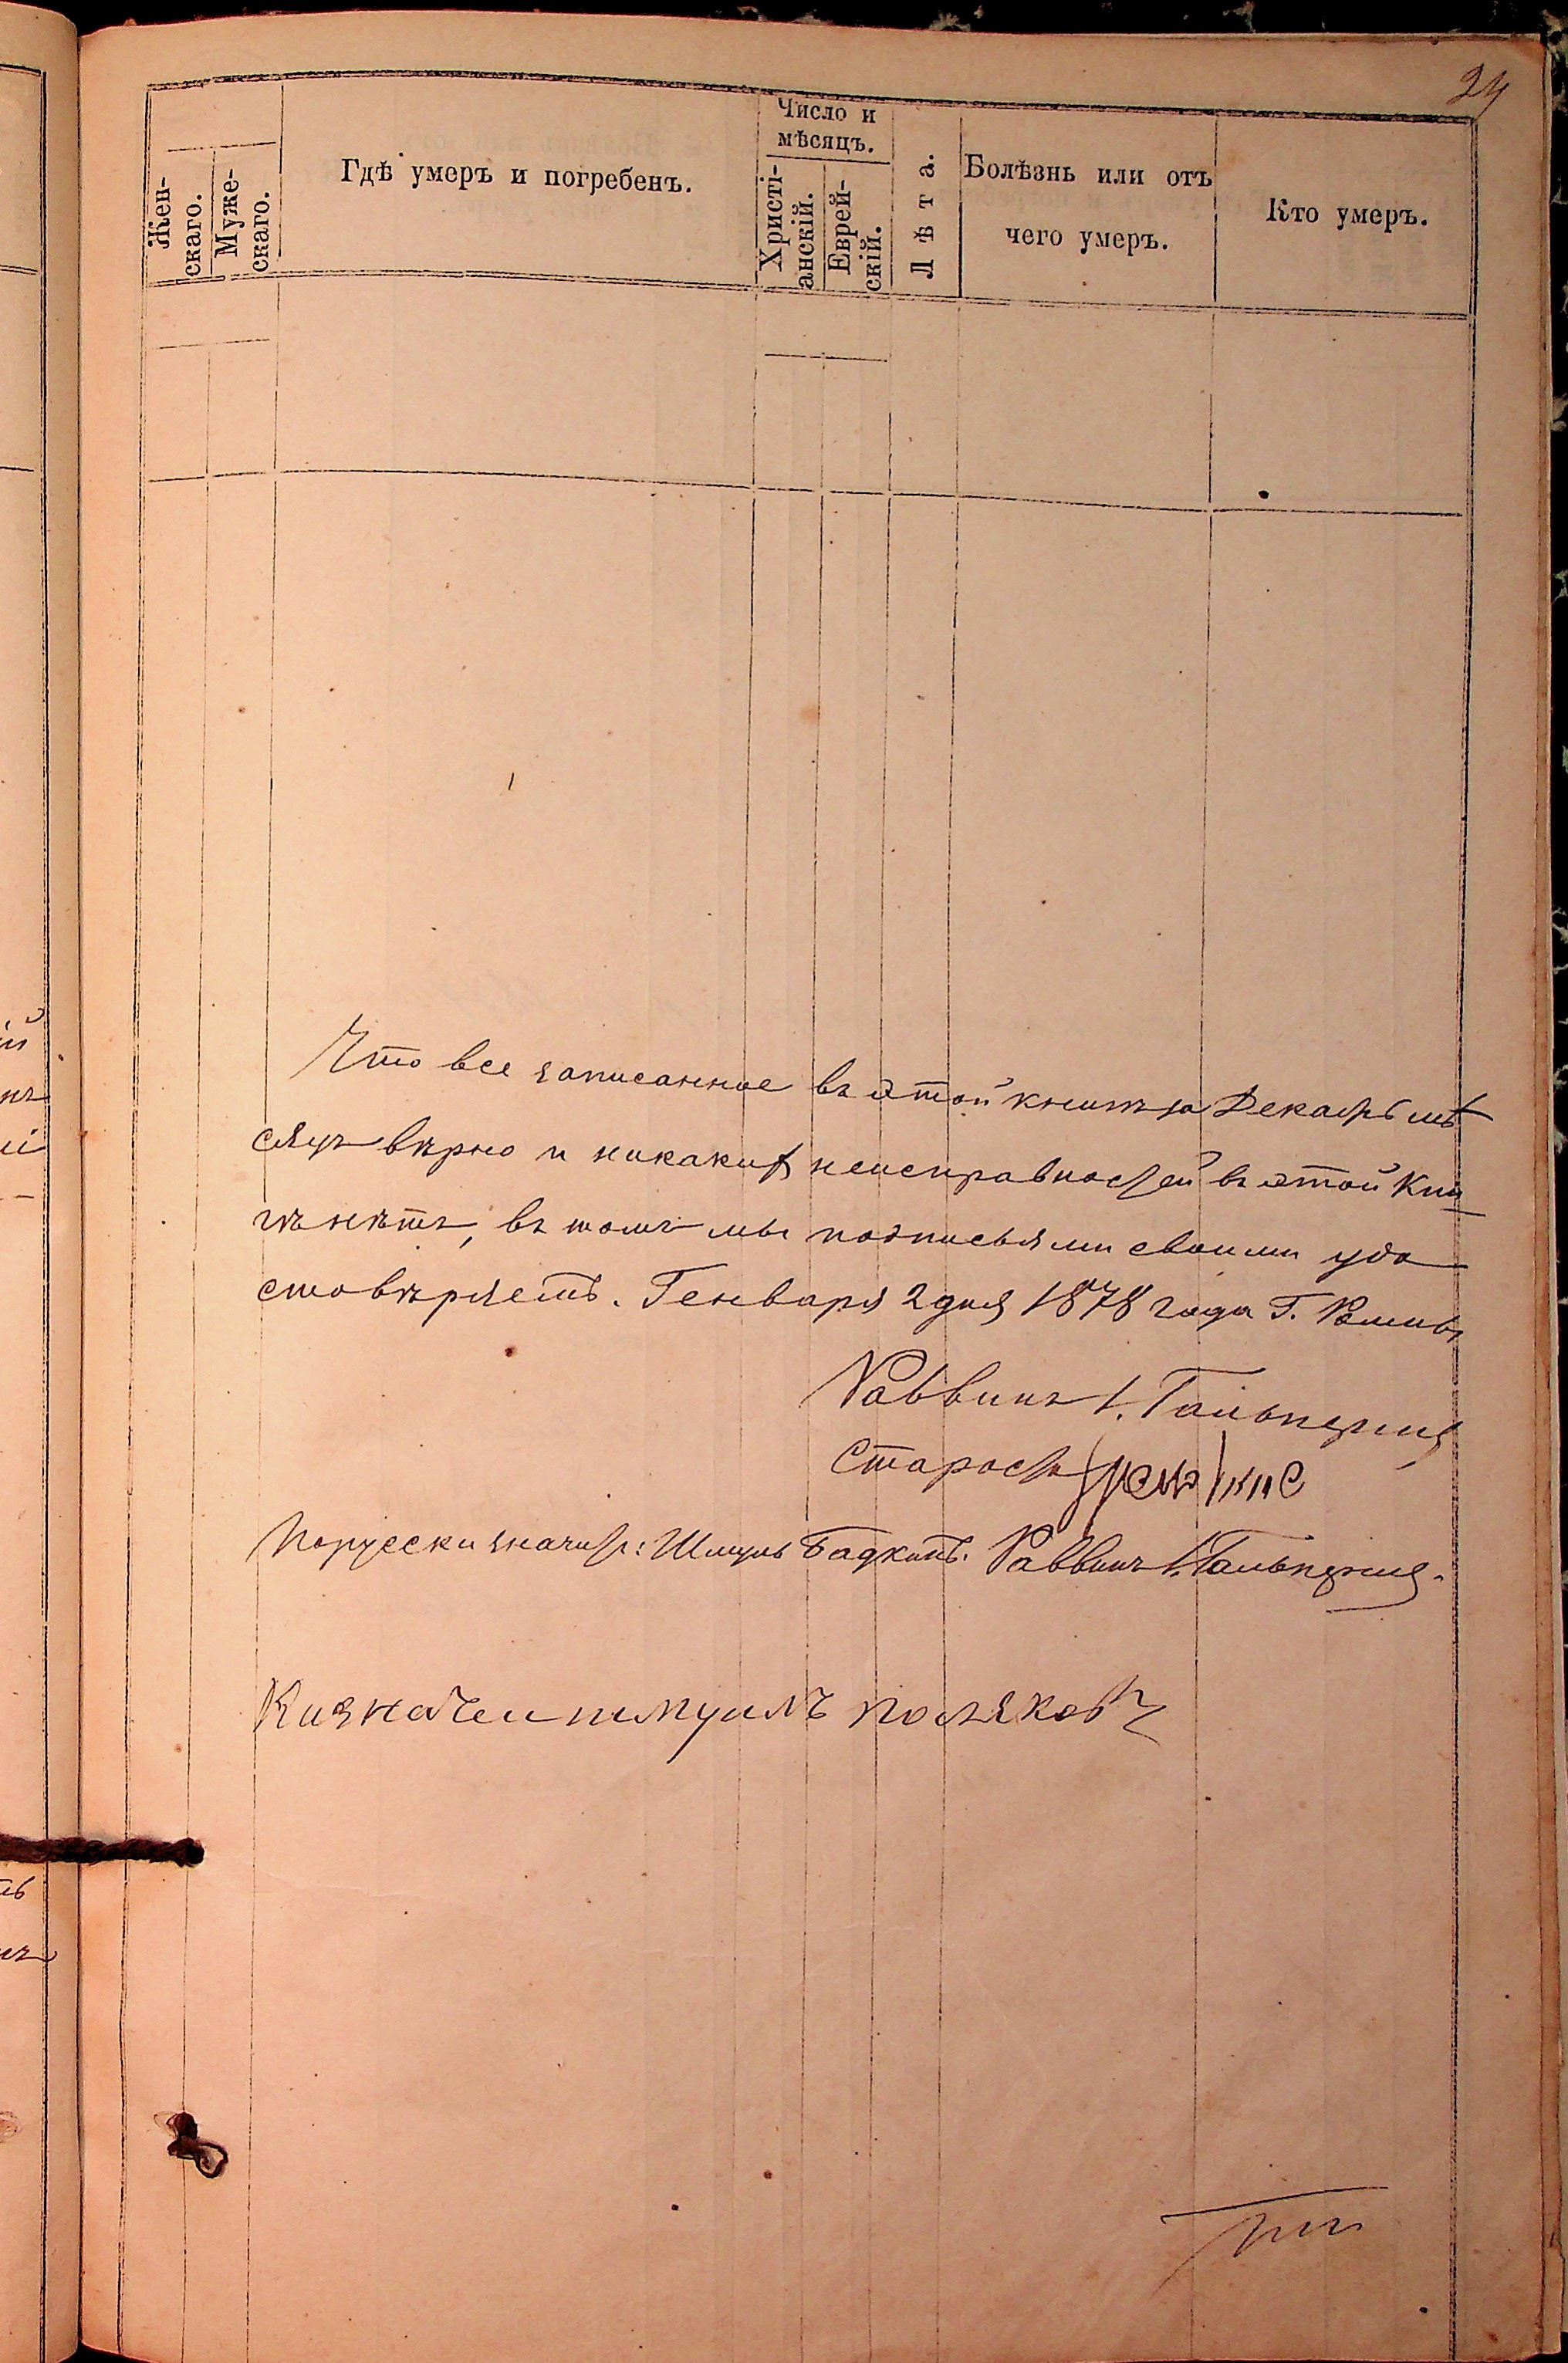 24
Жен-
скаго.
Муже-
скаго.
Гдѣ умеръ и погребенъ.
Число и
мѣсяцъ.
Христі-
анскій.
Еврей-
скій.
Лѣта.
Болѣзнь или отъ
чего умеръ.
Кто умеръ.
Что все записанное въ этой книгѣ за Декабрь мѣ
сяцъ вѣрно и никакихъ неисправностей въ этой кни
гѣ нѣтъ, въ томъ мы подписьями своими удо
стовѣряемъ. Генваря 2 дня 1878 года Г. Ромны
Раввинъ І. Гальперинъ
Староста
По русски значитъ: Шмуль Бадкинъ. Раввинъ І. Гальперинъ.
Казначеи шмуилъ поляковъ